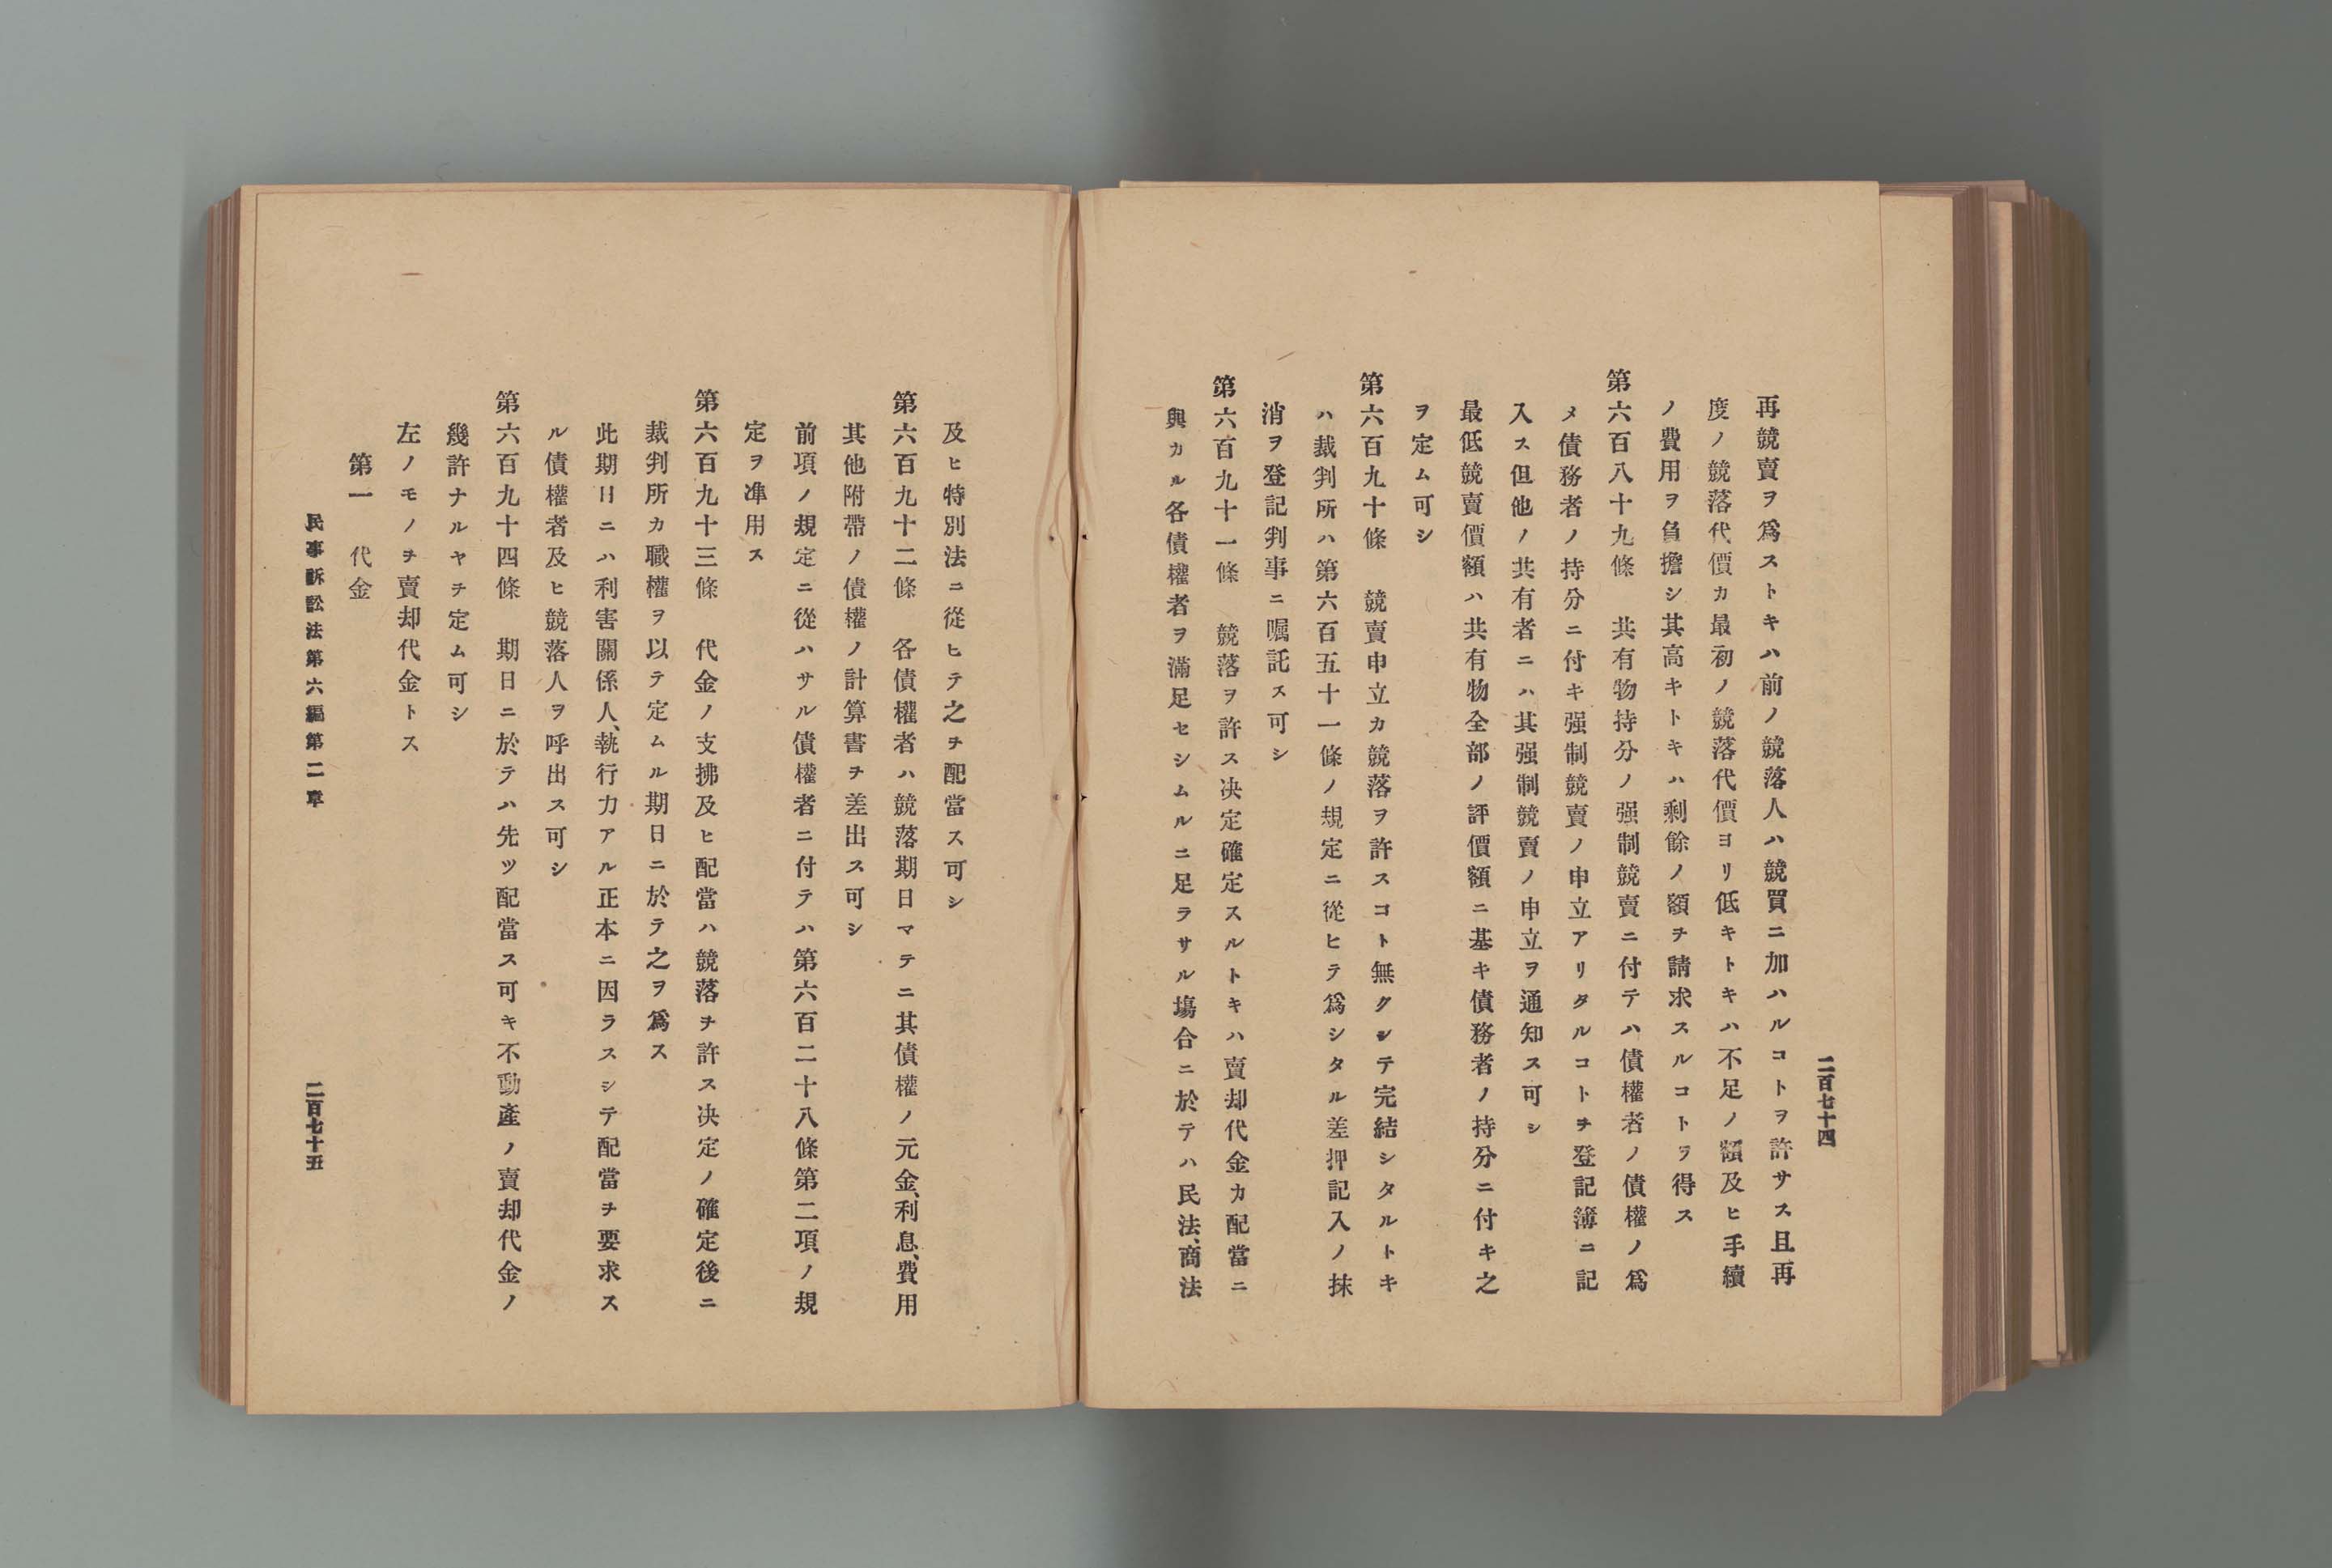 二百七十四
再競賣ヲ爲ストキハ前ノ競落人ハ競買ニ加ハルコトヲ許サス且再
度ノ競落代價カ最初ノ競落代價ヨリ低キトキハ不足ノ額及ヒ手續
ノ費用ヲ負擔シ其高キトキハ剩餘ノ額ヲ請求スルコトヲ得ス
第六百八十九條　共有物持分ノ强制競賣ニ付テハ債權者ノ債權ノ爲
メ債務者ノ持分ニ付キ强制競賣ノ申立アリタルコトヲ登記簿ニ記
入ス但他ノ共有者ニハ其强制競賣ノ申立ヲ通知ス可シ
最低競賣價額ハ共有物全部ノ評價額ニ基キ債務者ノ持分ニ付キ之
ヲ定ム可シ
第六百九十條　競賣申立カ競落ヲ許スコト無クシテ完結シタルトキ
ハ裁判所ハ第六百五十一條ノ規定ニ從ヒテ爲シタル差押記入ノ抹
消ヲ登記判事ニ囑託ス可シ
第六百九十一條　競落ヲ許ス决定確定スルトキハ賣却代金カ配當ニ
與カル各債權者ヲ滿足セシムルニ足ラサル塲合ニ於テハ民法、商法
及ヒ特別法ニ從ヒテ之ヲ配當ス可シ
第六百九十二條　各債權者ハ競落期日マテニ其債權ノ元金、利息、費用
其他附帶ノ債權ノ計算書ヲ差出ス可シ
前項ノ規定ニ從ハサル債權者ニ付テハ第六百二十八條第二項ノ規
定ヲ凖用ス
第六百九十三條　代金ノ支拂及ヒ配當ハ競落ヲ許ス决定ノ確定後ニ
裁判所カ職權ヲ以テ定ムル期日ニ於テ之ヲ爲ス
此期日ニハ利害關係人、執行力アル正本ニ因ラスシテ配當ヲ要求ス
ル債權者及ヒ競落人ヲ呼出ス可シ
第六百九十四條　期日ニ於テハ先ツ配當ス可キ不動產ノ賣却代金ノ
幾許ナルヤヲ定ム可シ
左ノモノヲ賣却代金トス
第一　代金
民事訴訟法第六編第二章　二百七十五